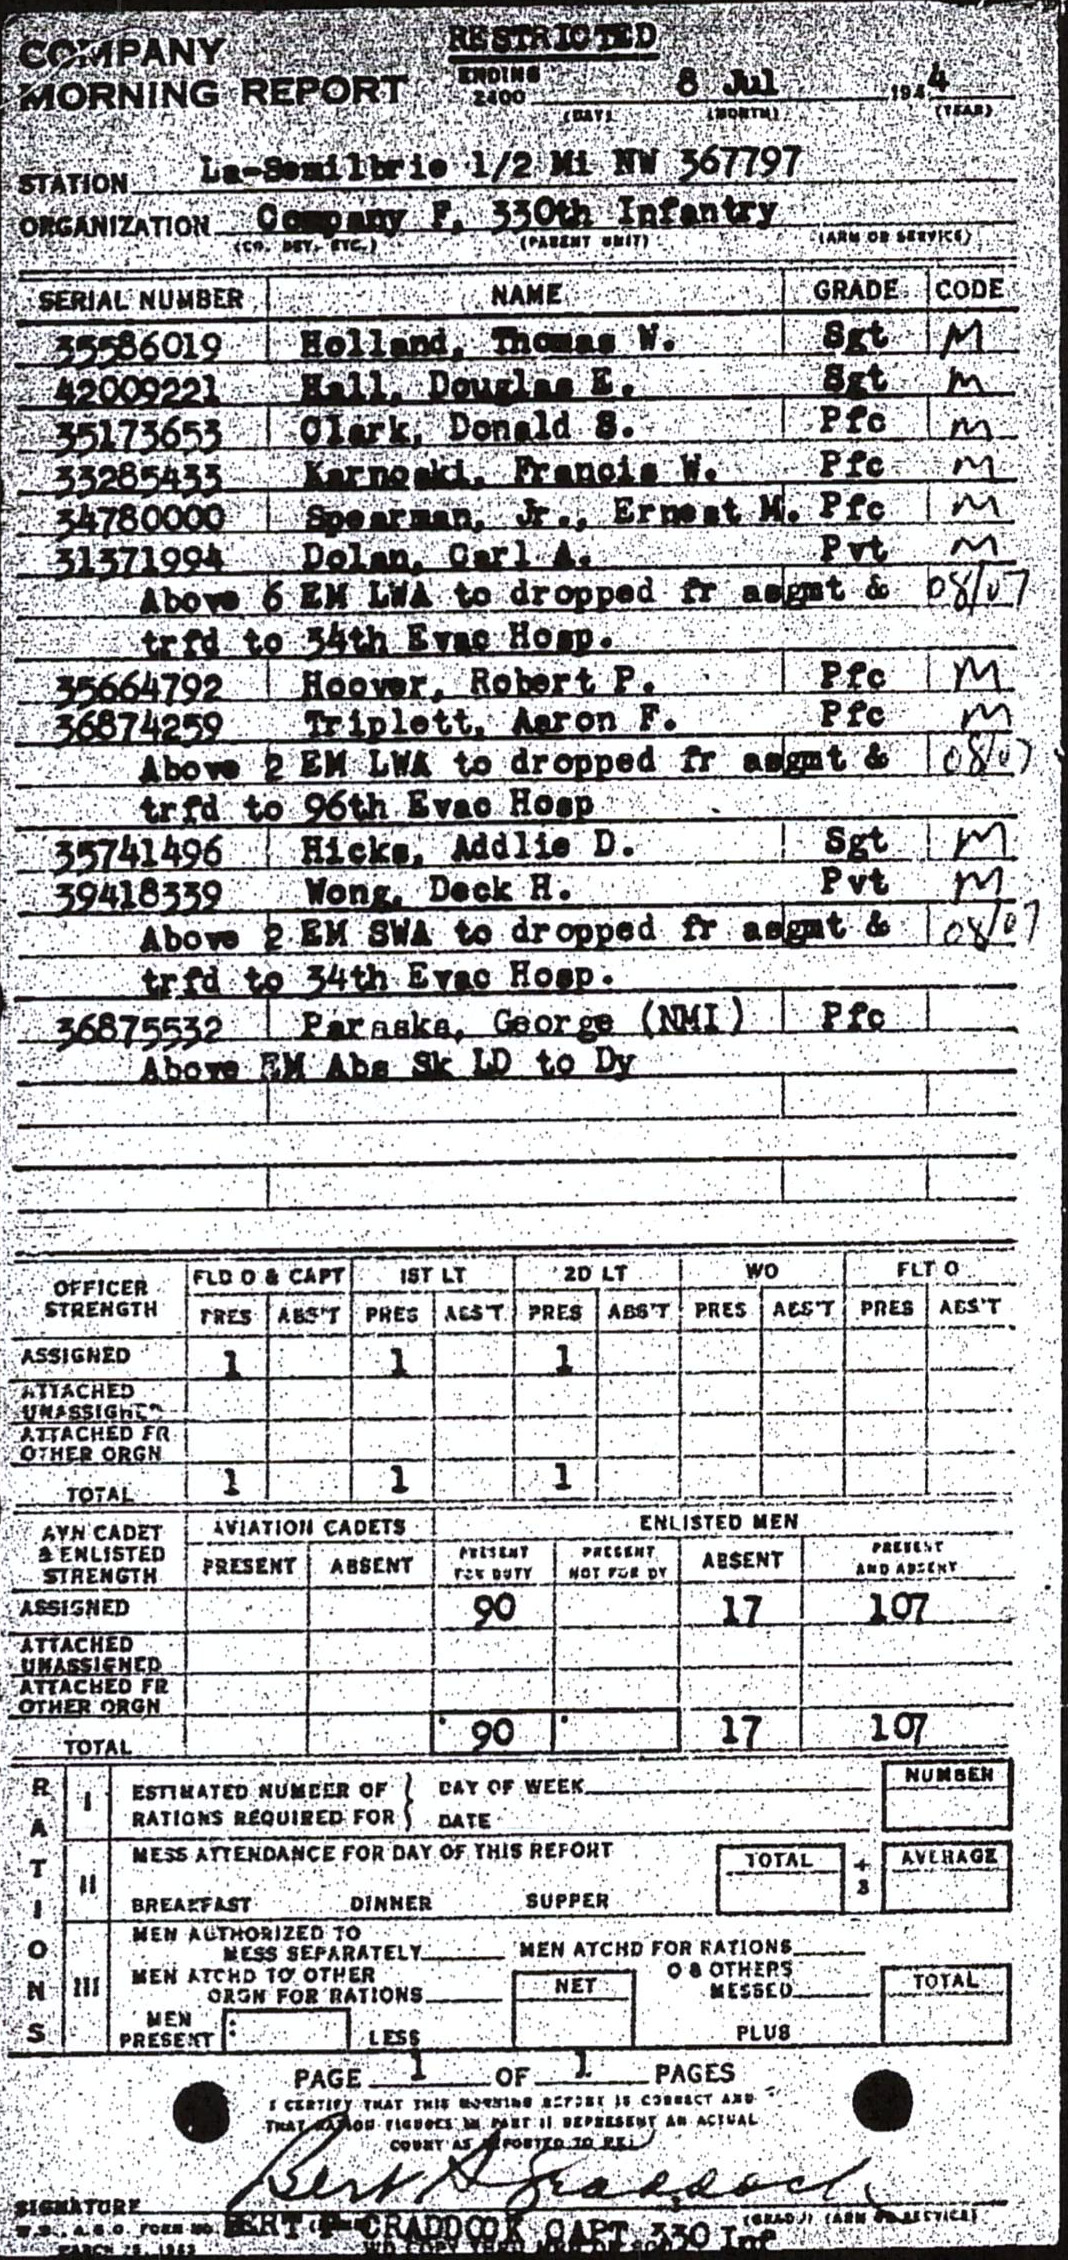 COMPANY
MORNING REPORT
RESTRICTED
ENDING
2400 8 Jul 1944
(DAY) (MONTH) (YEAR)
STATION La-Semilbrie 1/2 Mi NW 367797
ORGANIZATION Company F, 330th Infantry
(CO. DET. ETC.) (PARENT UNIT) (ARM OR SERVICE)
SERIAL NUMBER NAME GRADE CODE
35586019 Holland, Thomas W. Sgt M
42009221 Hall, Douglas E. Sgt M
35173653 Clark, Donald S. Pfc M
33285433 Karnoski, Francis W. Pfc M
34780000 Spearman, Jr., Ernest M. Pfc M
31371994 Dolan, Carl A. Pvt M
Above 6 EM LWA to dropped fr asgmt & 08/07
trfd to 34th Evac Hosp.
35664792 Hoover, Robert P. Pfc M
36874259 Triplett, Aaron F. Pfc M
Above 2 EM LWA to dropped fr asgmt & 08/07
trfd to 96th Evac Hosp
35741496 Hicks, Addlie D. Sgt M
39418339 Wong, Deck H. Pvt M
Above 2 EM SWA to dropped fr asgmt & 08/07
trfd to 34th Evac Hosp.
36875532 Paraska, George (NMI) Pfc
Above EM Abs Sk LD to Dy
OFFICER STRENGTH FLD O & CAPT 1ST LT 2D LT WO FLT O
PRES ABS'T PRES ABS'T PRES ABS'T PRES ABS'T PRES ABS'T
ASSIGNED 1 1 1
ATTACHED UNASSIGNED
ATTACHED FR OTHER ORGN
TOTAL 1 1 1
AVN CADET & ENLISTED STRENGTH AVIATION CADETS ENLISTED MEN
PRESENT ABSENT PRESENT FOR DUTY PRESENT NOT FOR DY ABSENT PRESENT AND ABSENT
ASSIGNED 90 17 107
ATTACHED UNASSIGNED
ATTACHED FR OTHER ORGN
TOTAL 90 17 107
RATIONS
I ESTIMATED NUMBER OF RATIONS REQUIRED FOR DAY OF WEEK NUMBER
DATE
II MESS ATTENDANCE FOR DAY OF THIS REPORT TOTAL ÷ 3 AVERAGE
BREAKFAST DINNER SUPPER
III MEN AUTHORIZED TO MESS SEPARATELY MEN ATCHD FOR RATIONS
MEN ATCHD TO OTHER ORGN FOR RATIONS NET O & OTHERS MESSED TOTAL
MEN PRESENT LESS PLUS
PAGE 1 OF 1 PAGES
I CERTIFY THAT THIS MORNING REPORT IS CORRECT AND
THAT RATION FIGURES IN PART II REPRESENT AN ACTUAL
COUNT AS REPORTED TO ME
Bert Craddock
SIGNATURE
(GRADE) (ARM OR SERVICE)
BERT CRADDOCK CAPT 330 Inf
W.D., A.G.O. FORM NO.
MARCH